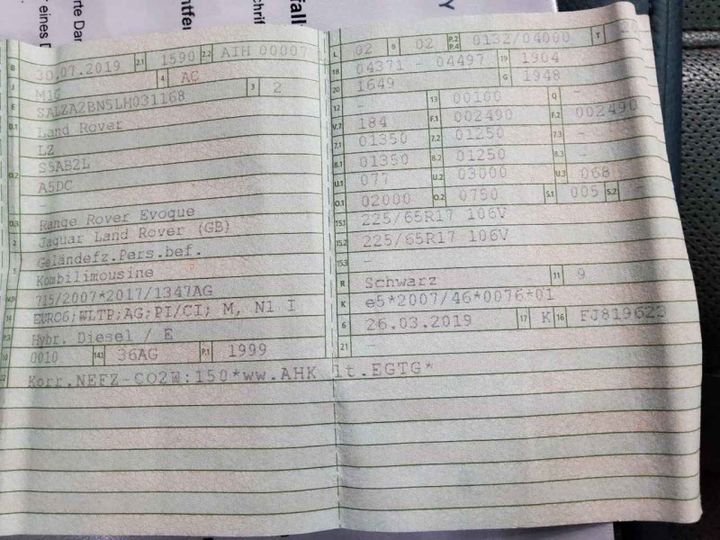 erte Dar
eines D
ntfe
chrif
fall
Y
B 30.07.2019 2.1 1590 2.2 AIH 00007
J M1G 4 AC
E SALZA2BN5LH031168 3 2
D.1 Land Rover
LZ
D.2 S5AB2L
A5DC
D.3 Range Rover Evoque
2 Jaguar Land Rover (GB)
5 Geländefz.Pers.bef.
Kombilimousine
V.9 715/2007*2017/1347AG
14 EURO6;WLTP;AG;PI/CI; M, N1 I
P.3 Hybr. Diesel / E
10 0010 14.1 36AG P.1 1999
22 Korr.NEFZ-CO2W:150*ww.AHK lt.EGTG*
L 02 9 02 P.2 P.4 0132/04000 T
18 04371 - 04497 19 1904
20 1649 G 1948
12 - 13 00100 Q -
V.7 184 F.1 002490 F.2 002490
7.1 01350 7.2 01250 7.3 -
8.1 01350 8.2 01250 8.3 -
U.1 077 U.2 03000 U.3 068
O.1 02000 O.2 0750 S.1 005 S.2 -
15.1 225/65R17 106V
15.2 225/65R17 106V
15.3 -
R Schwarz 11 9
K e5*2007/46*0076*01
6 26.03.2019 17 K 16 FJ819622
21 -